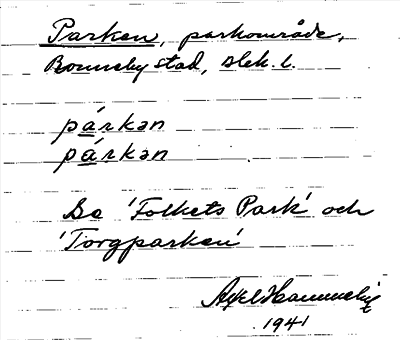 Parken, parkområde,
Ronneby stad, Blek. l.
párkən
párkən
Se 'Folkets Park' och
'Torgparken'
Axel
1941